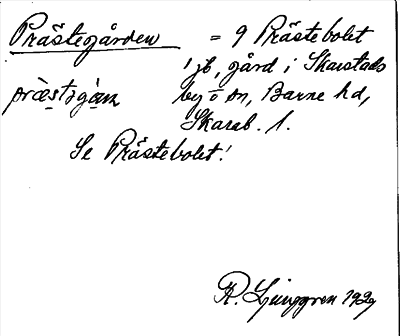 Prästegården = 9 Prästebolet
jb, gård i Skarstads
præstigàɳ by o sn, Barne hd,
Skarab. l.
Se Prästebolet!
R. Ljunggren 1929